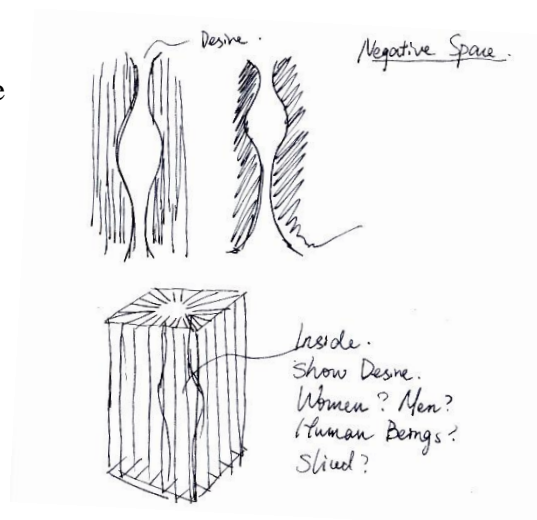 e
Desire.
Negative Space.
Inside.
Show Desire.
Women? Men?
Human Beings?
Sliced?